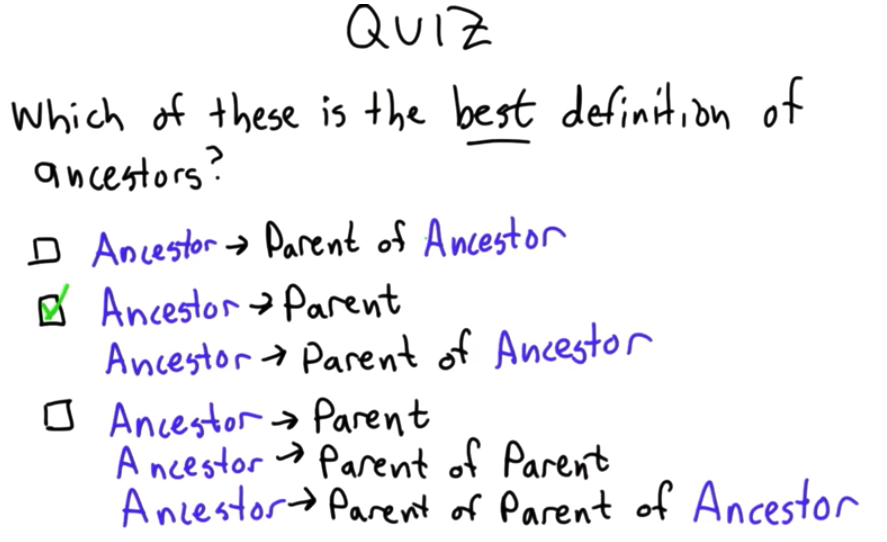 QUIZ
Which of these is the best definition of
ancestors?
Ancestor → Parent of Ancestor
Ancestor → Parent
Ancestor → Parent of Ancestor
Ancestor → Parent
Ancestor → Parent of Parent
Ancestor → Parent of Parent of Ancestor